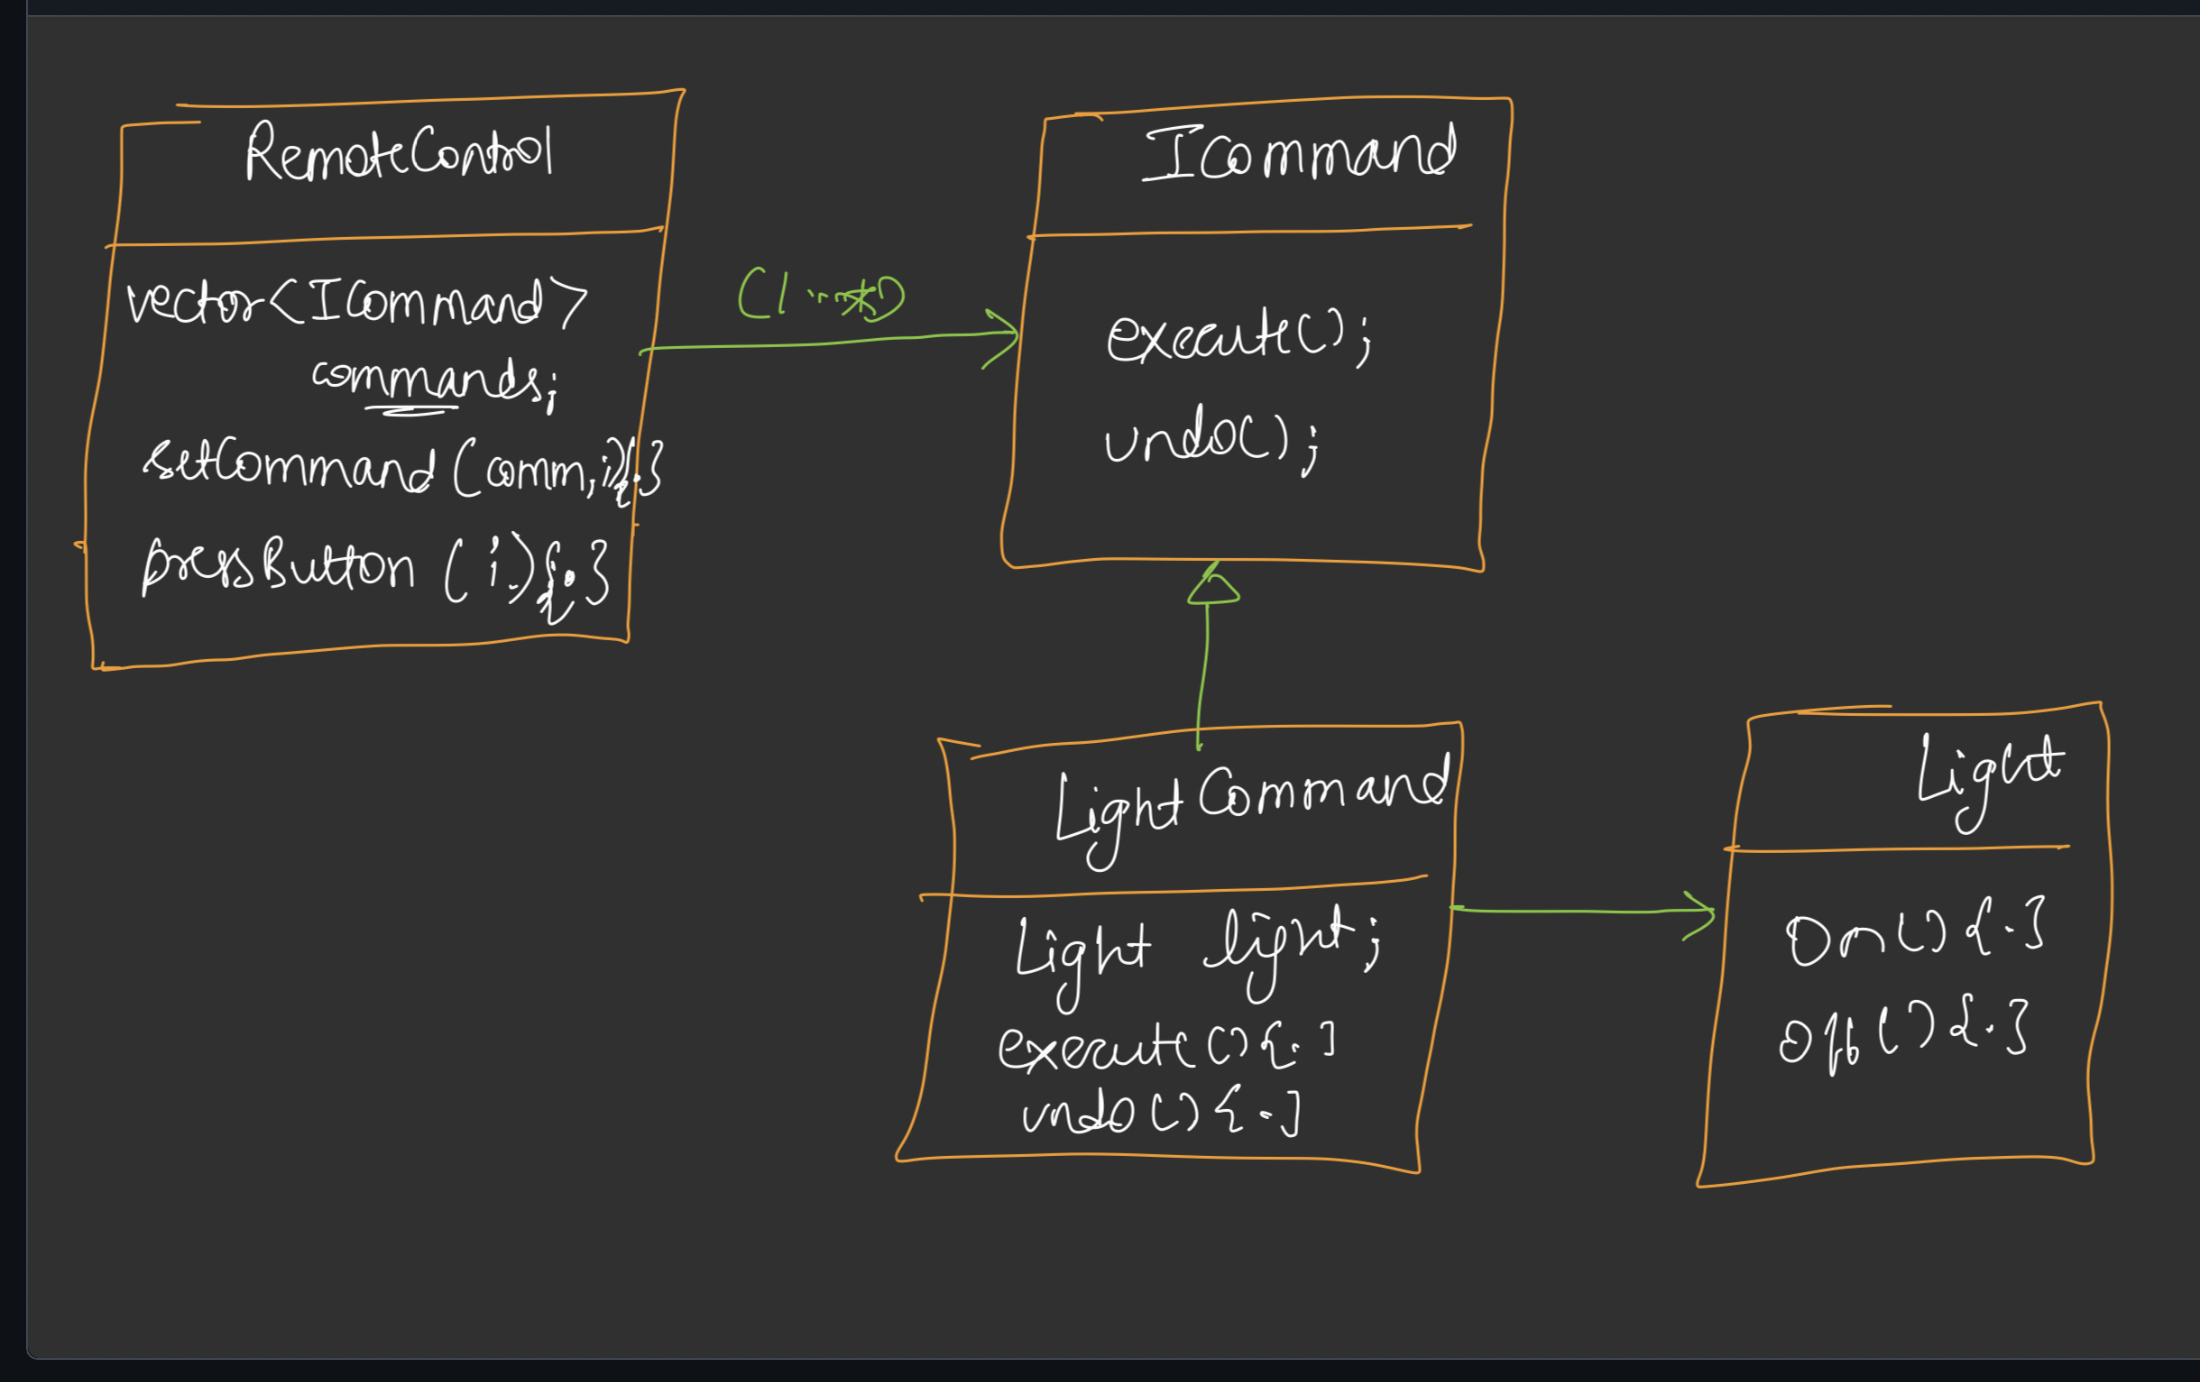 RemoteControl
vector<ICommand>
commands;
setCommand(comm,i){.}
pressButton (i){.}
(1...*)
ICommand
execute();
undo();
LightCommand
Light light;
execute(){.}
undo(){.}
Light
on(){.}
off(){.}